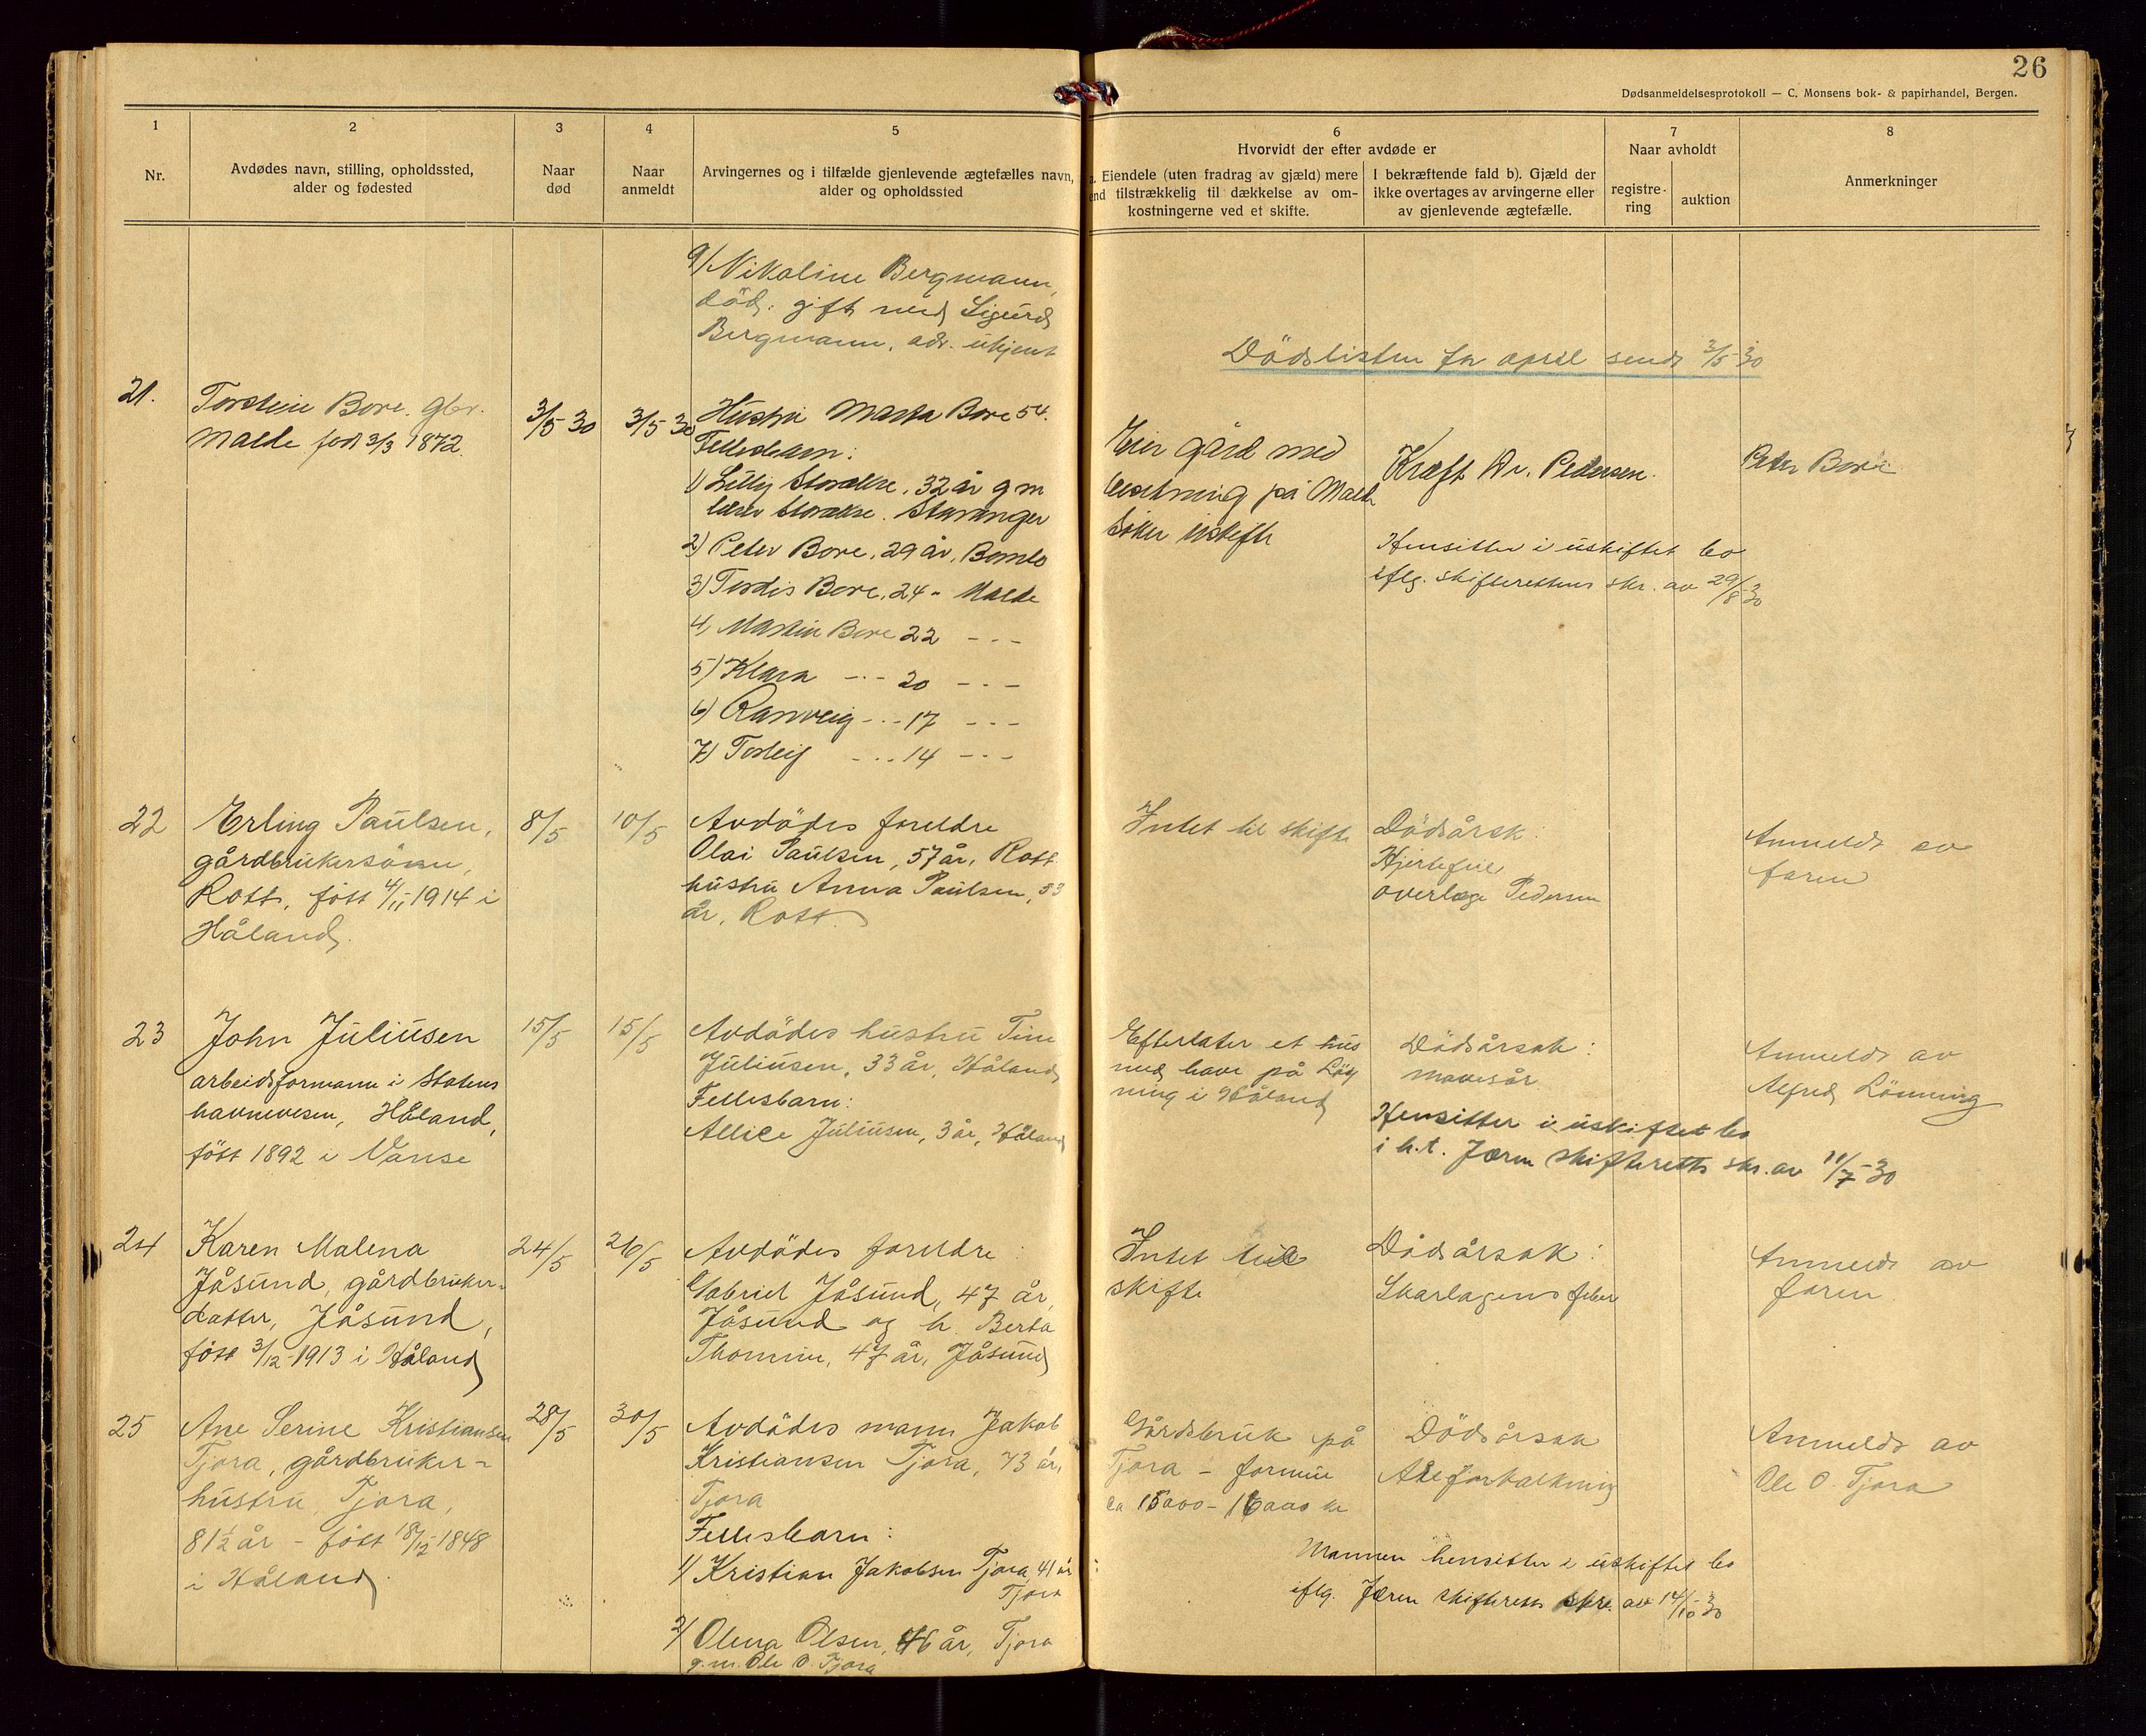 26
Dødsanmeldelsesprotokoll — C. Monsens bok- & papirhandel, Bergen.
1
Nr.
2
Avdødes navn, stilling, opholdssted,
alder og fødested
3
Naar
død
4
Naar
anmeldt
5
Arvingernes og i tilfælde gjenlevende ægtefælles navn,
alder og opholdssted
6
Hvorvidt der efter avdøde er
a. Eiendele (uten fradrag av gjæld) mere
end tilstrækkelig til dækkelse av om-
kostningerne ved et skifte.
I bekræftende fald b). Gjæld der
ikke overtages av arvingerne eller
av gjenlevende ægtefælle.
7
Naar avholdt
registre-
ring
auktion
8
Anmerkninger
9/ Nikoline Bergmann,
död. gift med Sigurd
Bergmann, adr. ukjent
Dödslisten for april sendt 3/5-30
21.
Torstein Bore. gbr.
Malde född 3/3 1872.
3/5-30
3/5-30
Hustru Marta Bore 54.
Fellesbarn:
1) Lilly 32 år gm
Stavanger
2) Peter Bore, 29 år,
3) Tordis Bore, 24 - Malde
4) Martin Bore 22 - - -
5) Klara - - - 20 - - -
6) Ranveig - - - 17 - - -
7) Torleif - - - 14 - - -
Eier gård med
besetning på Malde
Söker uskifte
Kreft Dr. Pedersen.
Hensitter i uskiftet bo
iflg. skifterettens skr. av 29/8-30
Peter Bore
22
Erling Paulsen,
gårdbrukersönn,
Rott, fött 4/11-1914 i
Håland.
8/5
10/5
Avdödes foreldre
Olai Paulsen, 57 år, Rott
hustru Anna Paulsen, 53
år, Rott.
Intet til skifte
Dödsårsk:
Hjertefeil
overlæge Pedersen
Anmeldt av
faren
23
John Juliusen
arbeidsformann i Statens
havnevesen, Håland,
fött 1892 i Vanse
15/5
15/5
Avdödes hustru Tine
Juliusen, 33 år, Håland,
Fellesbarn:
Allice Juliusen, 3 år, Håland
Efterlater et hus
med have på Löy
ning i Håland
Dödsårsak:
mavesår
Hensitter i uskiftet bo
i h.t. Jæren skifteretts skr. av 11/7-30
Anmeldt av
Alfred Lönning
24
Karen Malena
Jåsund, gårdbruker-
datter, Jåsund,
fött 3/12-1913 i Håland
24/5
26/5
Avdödes foreldre:
Gabriel Jåsund, 47 år,
Jåsund og h. Berta
Thomine, 47 år, Jåsund
Intet til
skifte
Dödsårsak:
Skarlagensfeber
Anmeldt av
faren
25
Ane Serine Kristiansen
Tjora, gårdbruker-
hustru, Tjora,
81½ år - fött 18/12-1848
i Håland
28/5
30/5
Avdödes mann Jakob
Kristiansen Tjora, 73 år,
Tjora
Fellesbarn:
1/ Kristian Jakobsen Tjora, 41 år
Tjora
2/ Olena Olsen, 46 år, Tjora
g.m. Ole O. Tjora
Gårdsbruk på
Tjora - formue
ca 15000 - 16000 kr
Dödsårsak
Åreforkalkning
Mannen hensitter i uskiftet bo
iflg. Jæren skifteretts skr. av 14/10-30
Anmeldt av
Ole O. Tjora